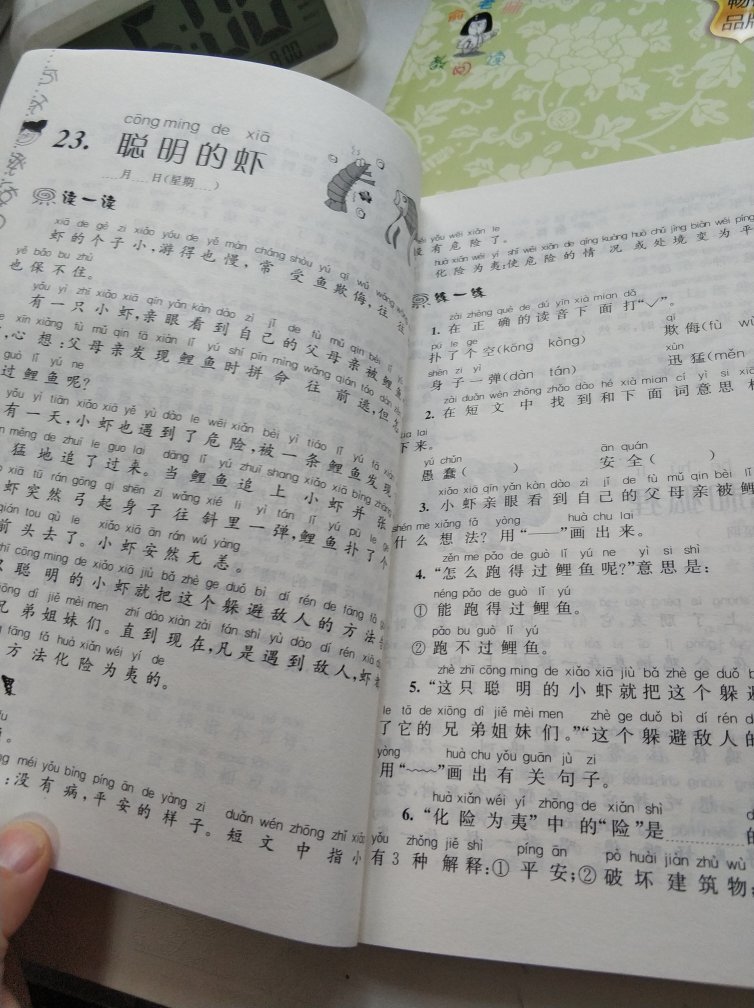 俞老师
教阅读
畅
品牌
23. 聪明的虾
cōng míng de xiā
月 日(星期 )
读一读
xiā de gè zi xiǎo yóu de yě màn cháng shòu yú qī wǔ wǎng wǎng
虾的个子小,游得也慢,常 受鱼欺侮,往 往
yě bǎo bu zhù
也保不住。
yǒu yì zhī xiǎo xiā qīn yǎn kàn dào zì jǐ de fù mǔ qīn bèi lǐ yú
有一只小虾,亲眼看到自己的父母亲被鲤鱼
xīn xiǎng fù mǔ qīn fā xiàn lǐ yú shí pīn mìng wǎng qián táo dàn zěn
,心想:父母亲发现鲤鱼时拼命 往 前逃,但怎
guò lǐ yú ne
过鲤鱼呢?
yǒu yì tiān xiǎo xiā yě yù dào le wēi xiǎn bèi yì tiáo lǐ yú fā xiàn
有一天,小虾也遇到了危险,被一条鲤鱼发现
měng de zhuī le guo lai dāng lǐ yú zhuī shang xiǎo xiā bìng zhāng
猛地追了过来。当鲤鱼追 上 小虾并 张
xiā tū rán gōng qǐ shēn zi wǎng xié li yì tán lǐ yú pū le ge
虾突然弓起身子往斜里一弹,鲤鱼扑了个
qián tou qù le xiǎo xiā ān rán wú yàng
前头去了。小虾安然无恙。
zhī cōng míng de xiǎo xiā jiù bǎ zhè ge duǒ bì dí rén de fāng fǎ
聪 明的小虾就把这个躲避敌人的方法
xiōng dì jiě mèi men zhí dào xiàn zài fán shì yù dào dí rén xiā
兄弟姐妹们。直到现在,凡是遇到敌人,虾
fāng fǎ huà xiǎn wéi yí de
方法化险为夷的。
méi yǒu bìng píng ān de yàng zi duǎn wén zhōng zhǐ xiǎo
:没有病,平安的样子。短文中指小
méi yǒu wēi xiǎn le
没有危险了。
huà xiǎn wéi yí shǐ wēi xiǎn de qíng kuàng huò chǔ jìng biàn wéi píng
化险为夷:使危险的情 况或处境变为平
练一练
zài zhèng què de dú yīn xià mian dǎ
1. 在 正 确的读音下面打“✓”。
pū le ge qī
扑了个空(kōng kòng) 欺侮(fǔ wǔ
shēn zi yì xùn
身子一弹(dàn tán) 迅猛(měn
zài duǎn wén zhōng zhǎo dào hé xià mian cí yì si xiā
2. 在短文中 找到和下面词意思相
xia lai
下来。
yú chǔn ān quán
愚蠢( ) 安全( )
xiǎo xiā qīn yǎn kàn dào zì jǐ de fù mǔ qīn bèi lǐ
3. 小虾亲眼看到自己的父母亲被鲤
shén me xiǎng fǎ yòng huà chu lai
什么想法?用“——”画出来。
zěn me pǎo de guò lǐ yú ne yì si shì
4. “怎么跑得过鲤鱼呢?”意思是:
néng pǎo de guò lǐ yú
① 能跑得过鲤鱼。
pǎo bu guò lǐ yú
② 跑不过鲤鱼。
zhè zhī cōng míng de xiǎo xiā jiù bǎ zhè ge duǒ b
5. “这只聪 明的小虾就把这个躲避
le tā de xiōng dì jiě mèi men zhè ge duǒ bì dí rén d
了它的兄弟姐妹们。”“这个躲避敌人的
yòng huà chu yǒu guān jù zi
用“﹏﹏”画出有关句子。
huà xiǎn wéi yí zhōng de xiǎn shì
6. “化险为夷”中的“险”是
yǒu zhǒng jiě shì píng ān pò huài jiàn zhù wù
有3种解释:①平安;②破坏建筑物;